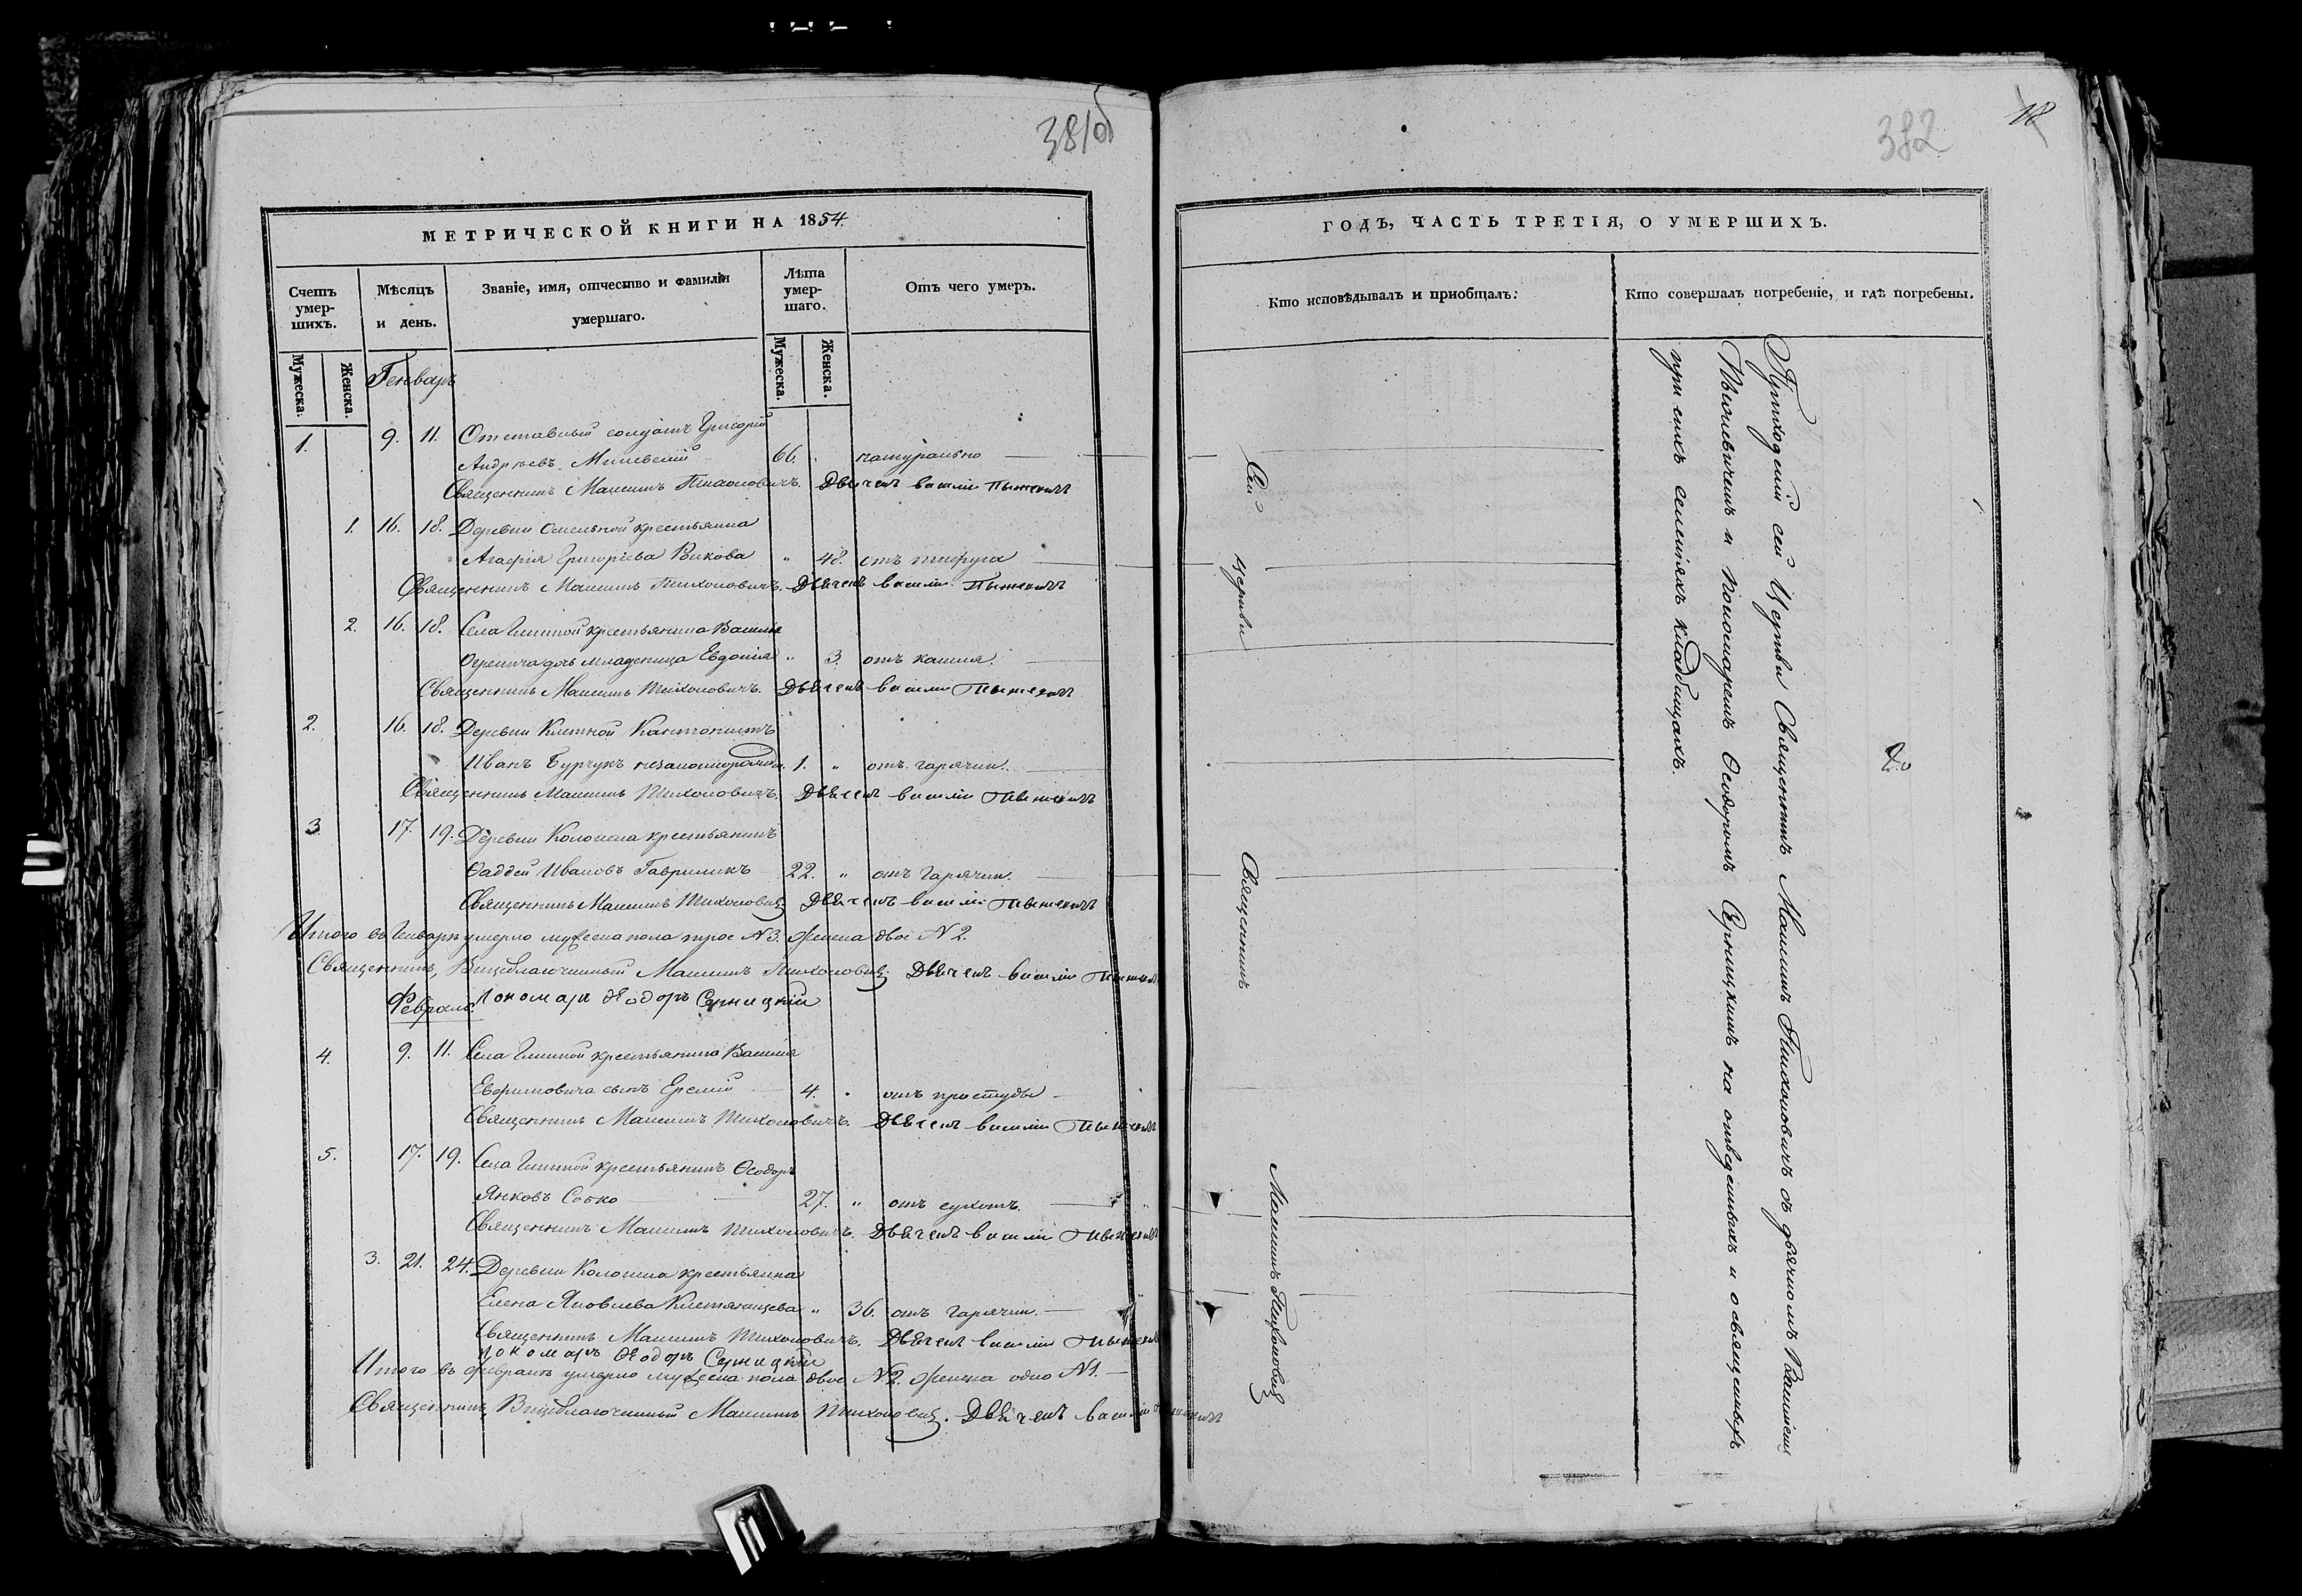 381об
МЕТРИЧЕСКОЙ КНИГИ НА 1854.
Счетъ умер-шихъ.
Мѣсяцъ и день.
Званіе, имя, отчество и фамилія умершаго.
Лѣта умер-шаго.
Отъ чего умеръ.
Мужеска.
Женска.
Мужеска.
Женска.
Генварь
1. 9. 11. Отставный солдатъ Григорій
Андреевъ 66. натурально
Священникъ Максимъ Тихоновичъ. Дьячекъ Василій
1. 16. 18. Деревни крестьянка
Агафія Григоріева Викова " 48. отъ
Священникъ Максимъ Тихоновичъ. Дьячекъ Василій
2. 16. 18. Села Глинной крестьянина Василія
дочь младеница Евдокія " 3. отъ кашля.
Священникъ Максимъ Тихоновичъ. Дьячекъ Василій
2. 16. 18. Деревни Клетной Кантонистъ
Иванъ Бурчукъ 1. " отъ гарячки.
Священникъ Максимъ Тихоновичъ. Дьячекъ Василій
3. 17. 19. Деревни Колонска крестьянинъ
Фаддей Ивановъ Гавриликъ 22. " отъ гарячки.
Священникъ Максимъ Тихоновичъ Дьячекъ Василій
Итого въ Генварѣ умерло мужеска пола трое №3. женска двое №2.
Священникъ, Вицеблагочинный Максимъ Тихоновичъ. Дьячекъ Василій
Пономарь Ѳеодоръ Серницкій
Февраль.
4. 9. 11. Села Глинной крестьянина Василія
Евфимовича сынъ Еремій 4. " отъ простуды
Священникъ Максимъ Тихоновичъ. Дьячекъ Василій
5. 17. 19. Села Глинной крестьянинъ Ѳеодоръ
Янковъ Собко 27. " отъ сухотъ.
Священникъ Максимъ Тихоновичъ. Дьячекъ Василій
3. 21. 24. Деревни Колонска крестьянка
Елена Яковлева " 36. отъ гарячки.
Священникъ Максимъ Тихоновичъ. Дьячекъ Василій
Пономарь Ѳеодоръ Серницкій
Итого въ февралѣ умерло мужеска пола двое №2. женска одно №1.
Священникъ, Вицеблагочинный Максимъ Тихоновичъ. Дьячекъ Василій
382
18
ГОДЪ, ЧАСТЬ ТРЕТІЯ, О УМЕРШИХЪ.
Кто исповѣдывалъ и приобщалъ:
Кто совершалъ погребеніе, и гдѣ погребены.
Сей церкви Священникъ Максимъ Тихоновичъ
Приходскій сей Церкви Священникъ Максимъ Тихоновичъ съ дьячкомъ Василіемъ
и Пономаремъ Ѳеодоромъ Серницкимъ на отведенныхъ и освященныхъ
при сихъ селеніяхъ кладбищахъ.